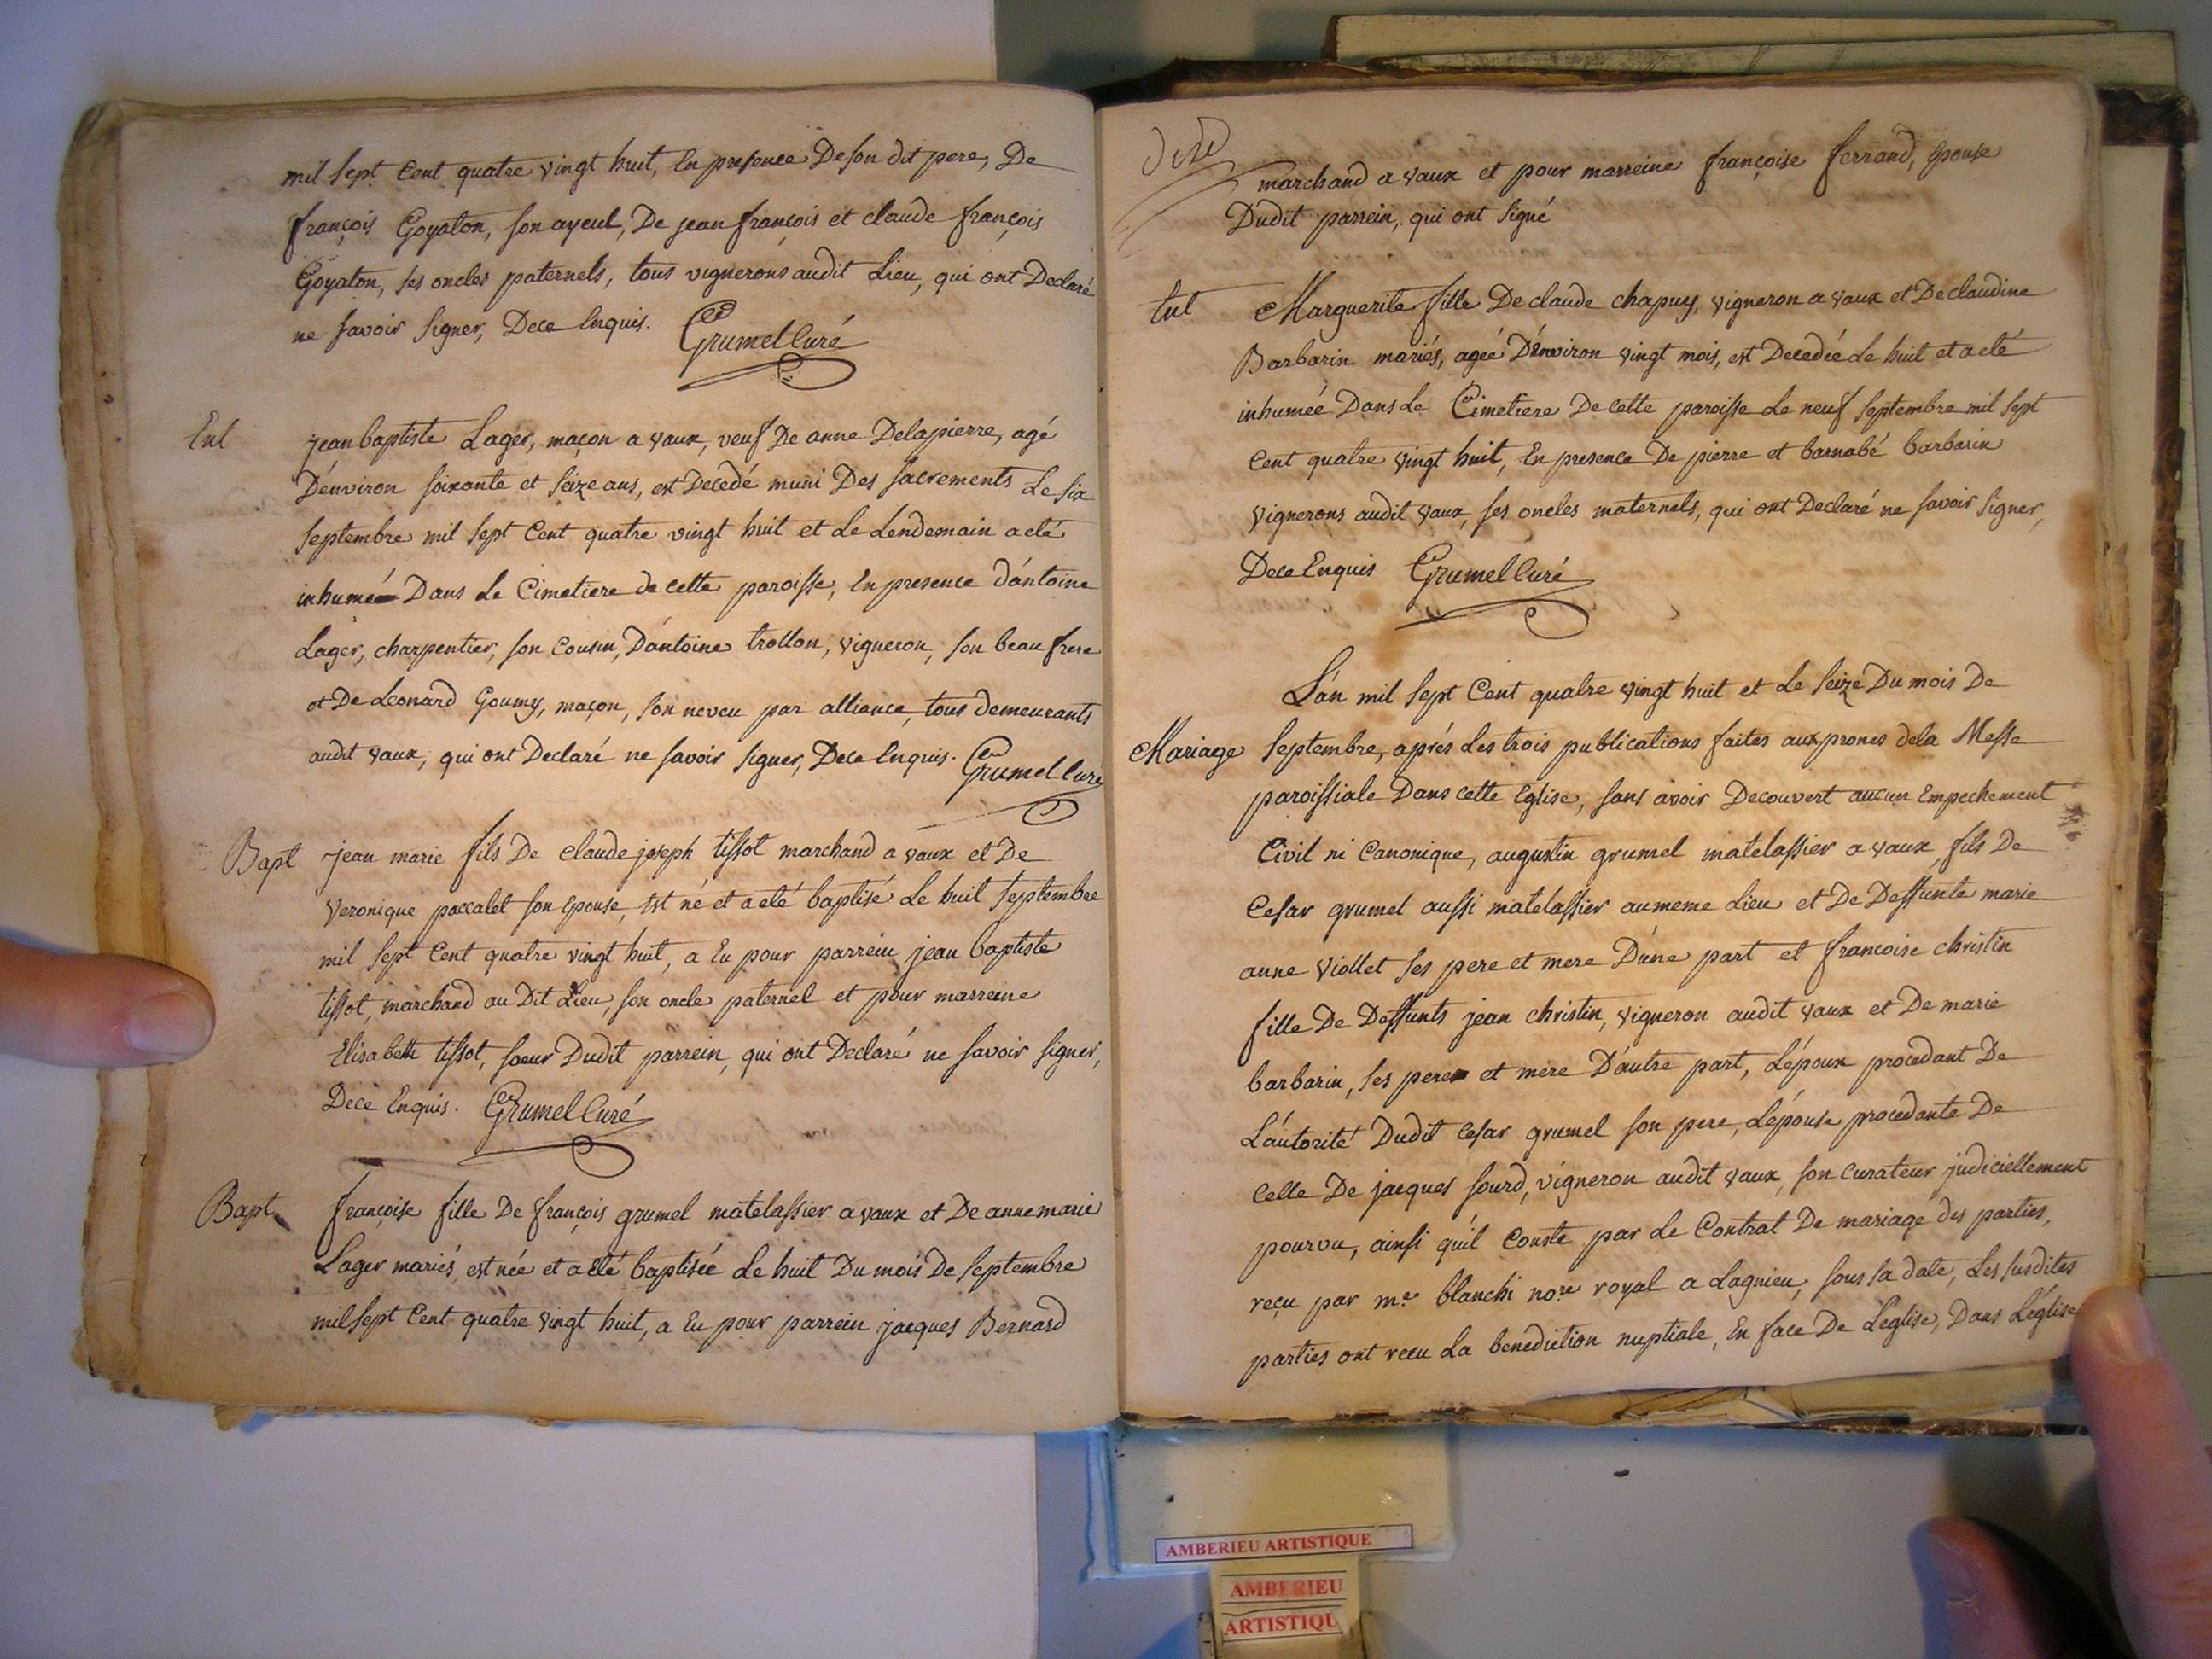 mil sept Cent quatre vingt huit, En presence De son dit pere, De
françois Goyaton, son ayeul, De jean françois et claude françois
Goyaton, ses oncles paternels, tous vignerons audit Lieu, qui ont Declaré
ne savoir signer, Dece Enquis. Grumel Curé
Ent jean baptiste Lager, maçon a vaux, veuf De anne Delapierre, agé
D'environ soixante et seize ans, est Decedé muni Des sacrements Le six
septembre mil sept Cent quatre vingt huit et Le Lendemain a eté
inhumé Dans Le Cimetiere de cette paroisse, En presence D'antoine
Lager, charpentier, son Cousin, D'antoine trollon, vigneron, son beau frere
et De Leonard Goumy, maçon, son neveu par alliance, tous demeurants
audit vaux, qui ont Declaré ne savoir signer, Dece Enquis. Grumel Curé
Bapt jean marie fils De claude joseph tissot marchand a vaux et De
Veronique paccalet son Epouse, Est né et a eté baptisé Le huit septembre
mil sept Cent quatre vingt huit, a Eu pour parrein jean baptiste
tissot, marchand au Dit Lieu, son oncle paternel et pour marreine
Elisabeth tissot, soeur Dudit parrein, qui ont Declaré ne savoir signer,
Dece Enquis. Grumel Curé
Bapt françoise fille De françois grumel matelassier a vaux et De anne marie
Lager mariés, est née et a Eté baptisée Le huit Du mois De septembre
mil sept Cent quatre vingt huit, a Eu pour parrein jacques Bernard
marchand a vaux et pour marreine françoise ferrand, Epouse
Dudit parrein, qui ont signé
Ent Marguerite fille De claude chapuy, vigneron a vaux et De claudine
Barbarin mariés, agée D'environ vingt mois, est Decedée Le huit et a eté
inhumée Dans Le Cimetiere De cette paroisse Le neuf septembre mil sept
Cent quatre vingt huit, En presence De pierre et barnabé barbarin
vignerons audit vaux, ses oncles maternels, qui ont Declaré ne savoir signer,
Dece Enquis Grumel Curé
L'an mil sept Cent quatre vingt huit et Le seize Du mois De
Mariage septembre, aprés Les trois publications faites aux prones dela Messe
paroissiale Dans cette Eglise, sans avoir Decouvert aucun Empechement
Civil ni Canonique, augustin grumel matelassier a vaux fils De
Cesar grumel aussi matelassier au meme Lieu et De Deffunte marie
anne Viollet ses pere et mere D'une part et francoise christin
fille De Deffunts jean christin, vigneron audit vaux et De marie
barbarin, ses pere et mere D'autre part, L'époux procedant De
L'autorité Dudit Cesar grumel son pere, L'épouse procedante De
Celle De jacques sourd, vigneron audit vaux, son Curateur judiciellement
pourvu, ainsi qu'il Conste par Le Contrat De mariage des parties,
reçu par me. blanchi nore royal a Lagnieu, sous sa date, Les susdites
parties ont recu La benediction nuptiale, En face De L'eglise, Dans L'église
AMBERIEU ARTISTIQUE
AMBERIEU
ARTISTIQU